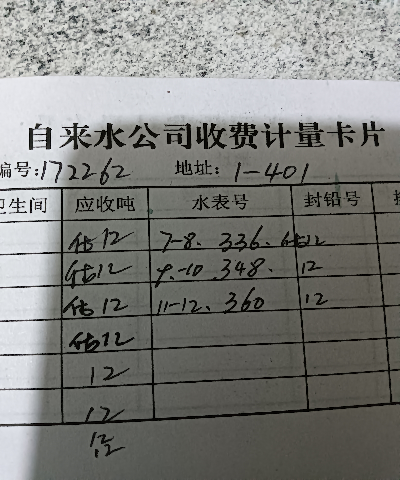 自来水公司收费计量卡片
编号:172262 地址: 1-401
卫生间 应收吨 水表号 封铅号
估12 7-8. 336. 估12
估12 9.-10. 348. 12
估12 11-12. 360 12
估12
12
12
12